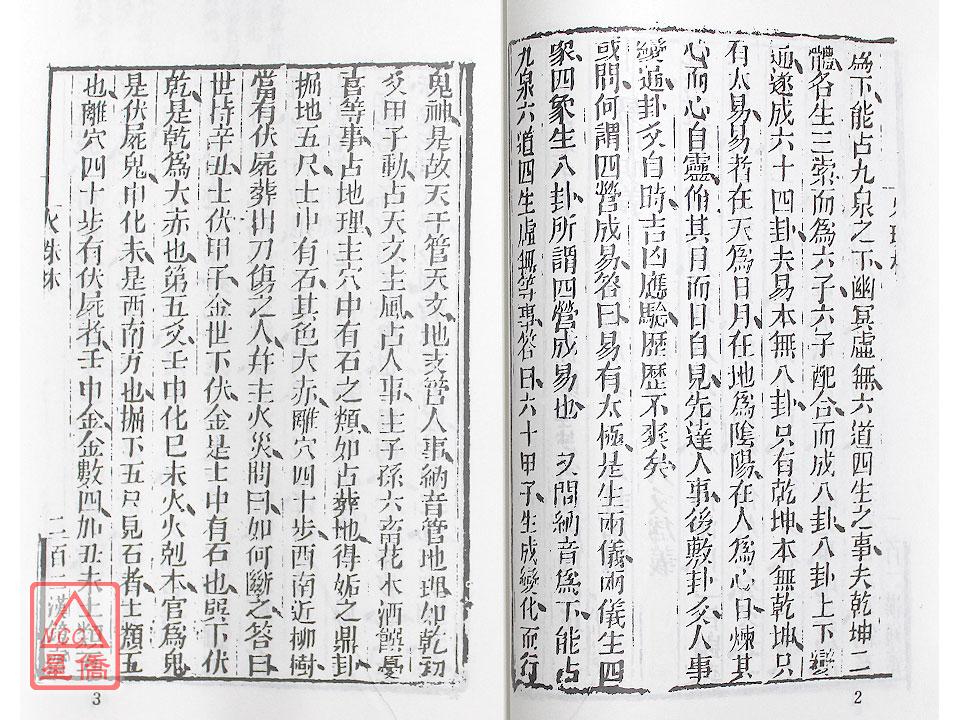 為下能占九泉之下幽冥虛無六道四生之事夫乾坤二
體各生三索而為六子六子配合而成八卦八卦上下變
通遂成六十四卦夫易本無八卦只有乾坤本無乾坤只
有太易易者在天為日月在地為陰陽在人為心日煉其
心而心自靈脩其月而日自見先達人事後敷卦爻人事
變通卦爻自時吉凶應驗歷歷不爽矣
或問何謂四營成易答曰易有太極是生兩儀兩儀生四
象四象生八卦所謂四營成易也 又問納音為下能占
九泉六道四生虛無等事答曰六十甲子生成變化而行
2
鬼神是故天干管天文地支管人事納音管地理如乾初
爻甲子動占天文主風占人事主子孫六畜花木酒饌憂
喜等事占地理主穴中有石之類如占葬地得姤之鼎卦
掘地五尺土中有石其色大赤離穴四十步酉南近柳樹
當有伏屍葬出刀傷之人幷主火災問曰如何斷之答曰
世持辛丑土伏甲子金世下伏金是土中有石也巽下伏
乾是乾為大赤也第五爻壬申化巳未火火剋木官為鬼
是伏屍鬼申化未是西南方也掘下五尺見石者土類五
也離穴四十步有伏屍者壬申金金數四加丑未土類
火珠林
二百
漢鏡
NCC
星僑
3